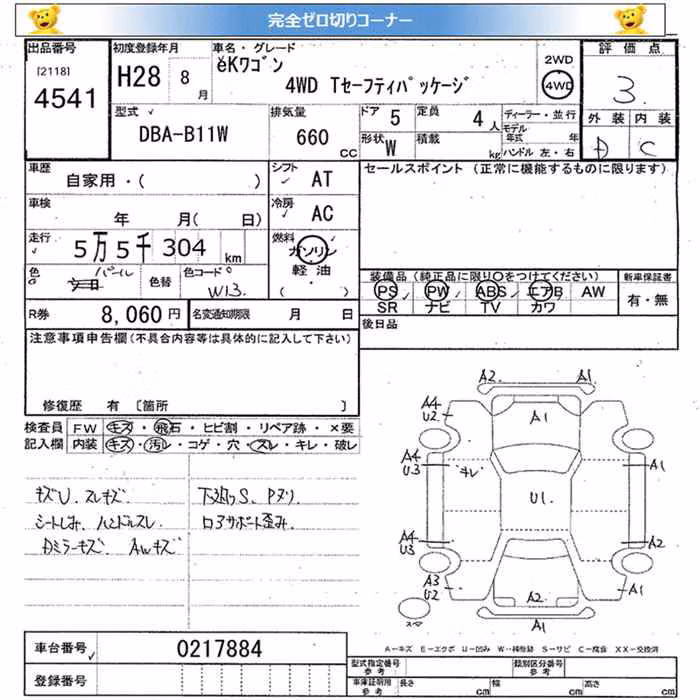 完全ゼロ切りコーナー
出品番号 初度登録年月 車名・グレード 評価点
[2118] 4541 H28 8月 eKワゴン 4WD Tセーフティパッケージ 2WD 4WD 3.
型式 排気量 ドア 5 定員 4人 ディーラー・並行 外装 内装
DBA-B11W 660 CC 形状 W 積載 kg モデル年式 年 D C
ハンドル 左・右
車歴 シフト セールスポイント (正常に機能するものに限ります)
自家用・( ) AT
車検 年 月( 日) 冷房 AC
走行 5万5千304 km 燃料 ガソリン 軽油 ( )
色 パール 色替 色コード W13. 装備品 (純正品に限り○をつけてください) 新車保証書
PS PW ABS エアB AW 有・無
SR ナビ TV カワ
R券 8,060円 名変通知期限 月 日 後日品
注意事項申告欄 (不具合内容等は具体的に記入して下さい)
修復歴 有 〔箇所 〕
検査員 FW キズ・飛石・ヒビ割・リペア跡・×要
記入欄 内装 キズ・汚レ・コゲ・穴・スレ・キレ・破レ
キズU.スレキズ 下廻りS、Pヌリ
シートしみ、ハンドルスレ ロアサポート歪み.
Dミラーキズ AWキズ
A2. A1.
A4 U2 A1
A4 U3 キレ A1
U1.
A4 U3 A2
A3 U2 A2 A1
スマ A1
A−キズ E−エクボ U−凹み W−補修跡 S−サビ C−腐食 XX−交換済
車台番号 0217884
型式指定番号 参考 類別区分番号 参考
登録番号 車庫証明用 参考 長さ cm 幅 cm 高さ cm